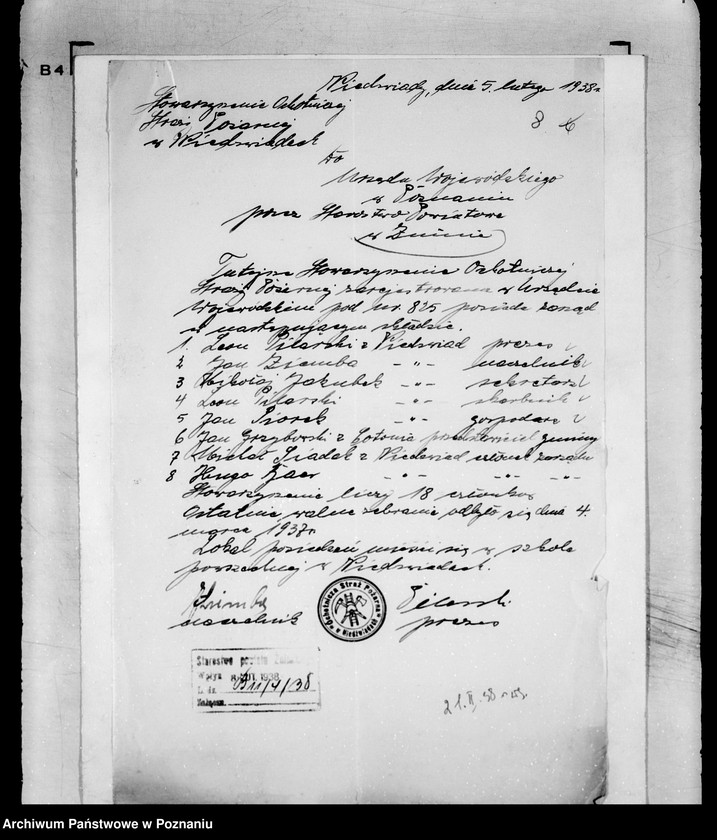 B4
Niedźwiady, dnia 5. lutego 1938r.
Stowarzyszenie Ochotniczej
Straży Pożarnej
w Niedźwiadach
8
Do
Urzędu Wojewódzkiego
w Poznaniu
przez Starostwo Powiatowe
w Żninie
Tutejsze Stowarzyszenie Ochotniczej
Straży Pożarnej zarejestrowane w Urzędzie
Wojewódzkim pod nr. 825 posiada zarząd
w następującym składzie.
1. Leon Pilarski z Niedźwiad prezes
2 Jan Ziemba -"- naczelnik
3 Mikołaj Jakubek -"- sekretarz
4 Leon Pilarski -"- skarbnik
5 Jan Piorek -"- gospodarz
6 Jan Grzybowski z przedstawiciel gminy
7 Michał Siadek z Niedźwiad członek zarządu
8 Hugo -"- -"- -"-
Stowarzyszenie liczy 18 członków
Ostatnie walne zebranie odbyło się dnia 4.
marca 1937r.
Lokal posiedzeń mieści się w szkole
powszechnej w Niedźwiadach.
Ziemba Pilarski
naczelnik prezes
Ochotnicza Straż Pożarna w Niedźwiadach
Starostwo powiatu
Wpłyn. 1938
L. dz. /4/38
Załączn.
21.II.38
Archiwum Państwowe w Poznaniu